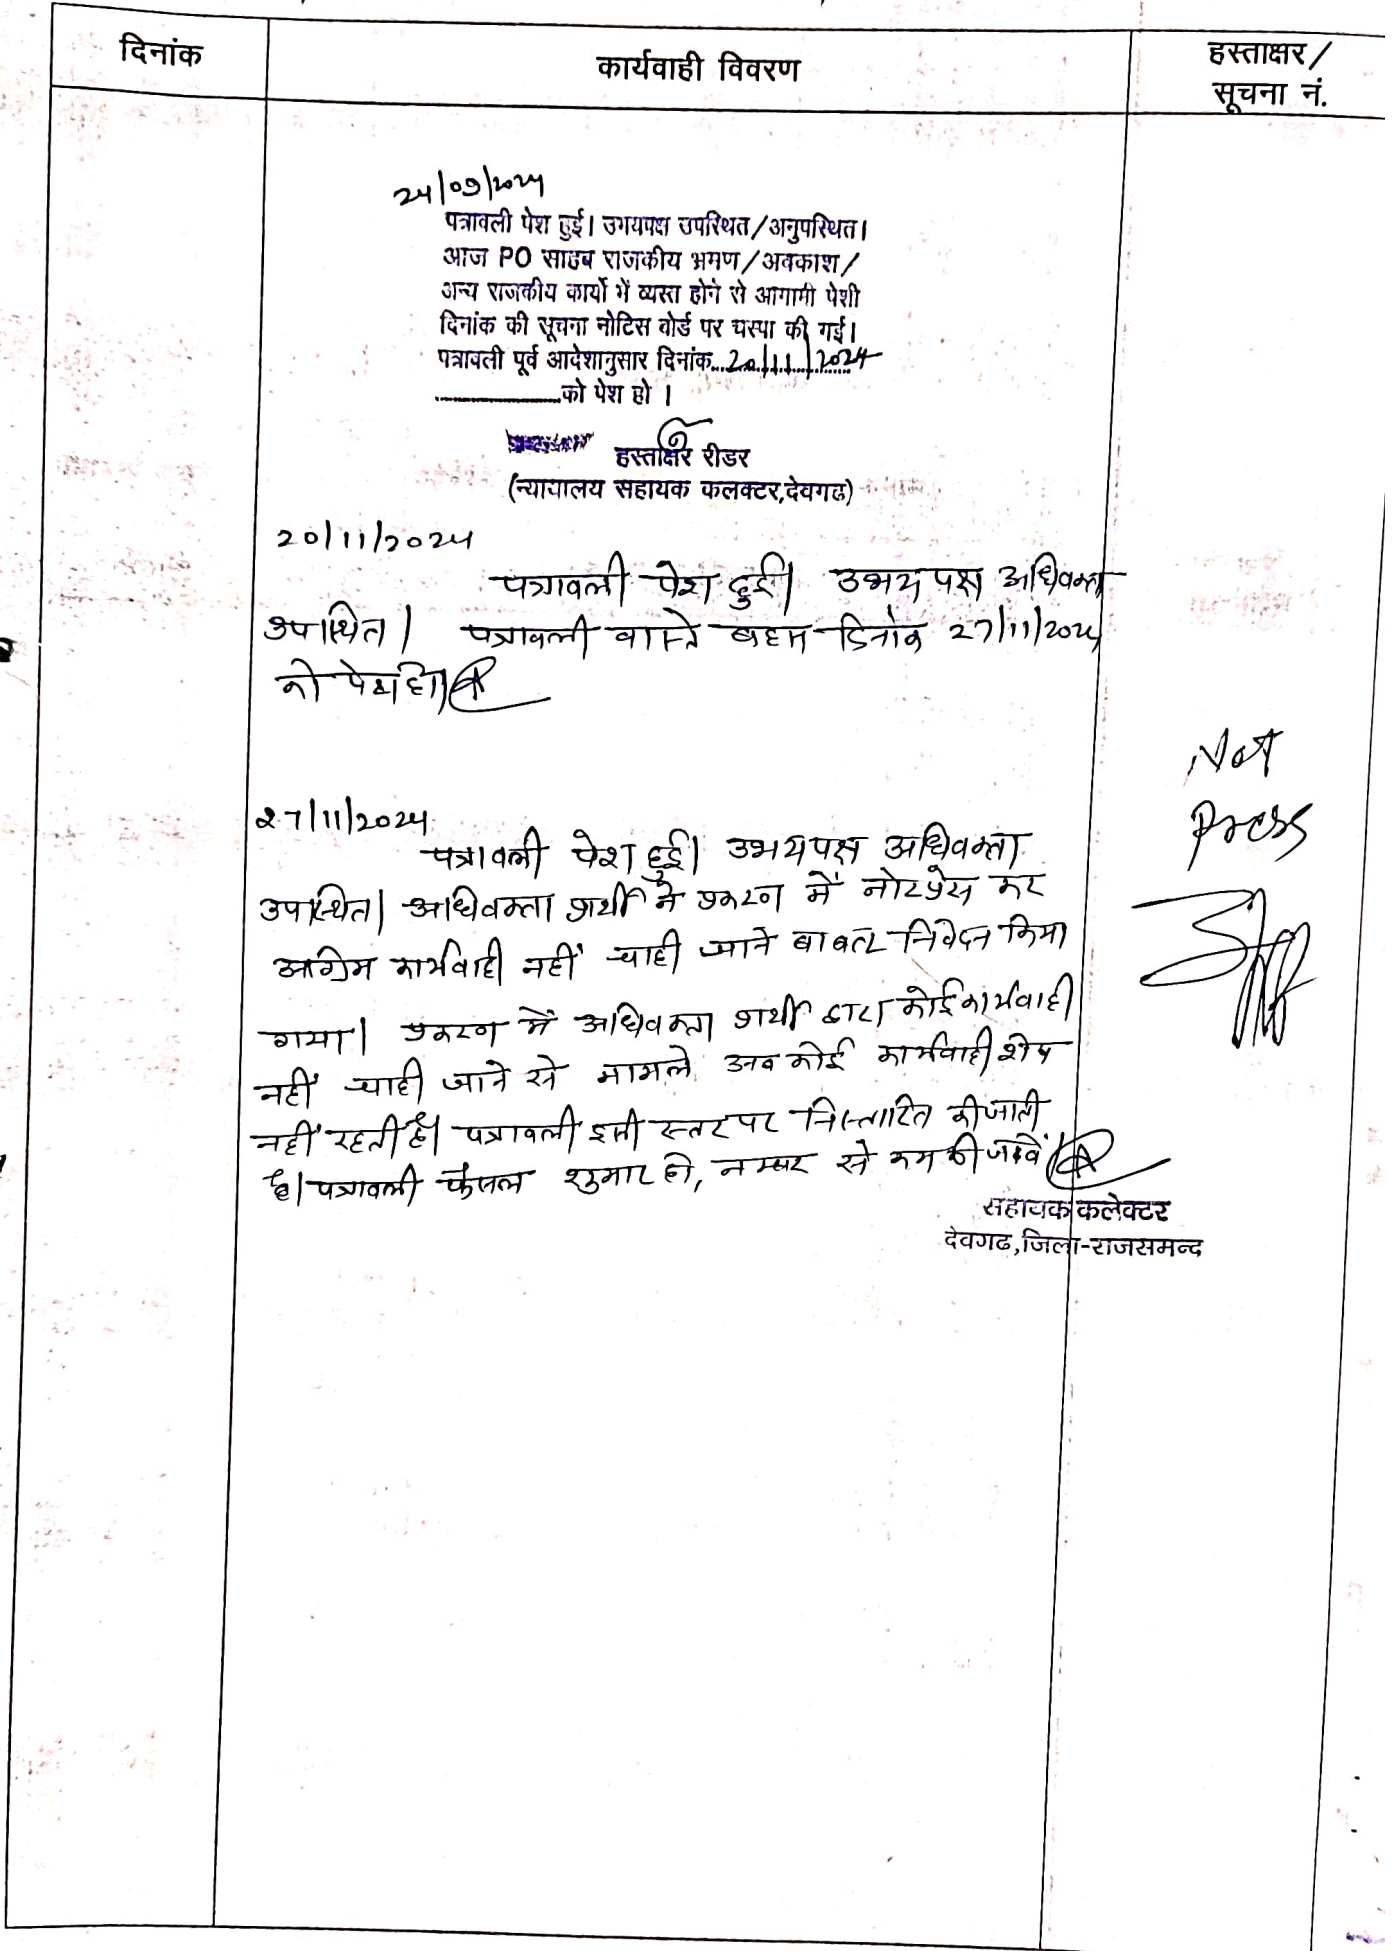 दिनांक
कार्यवाही विवरण
हस्ताक्षर/
सूचना नं.
24/09/2024
पत्रावली पेश हुई। उभयपक्ष उपस्थित/अनुपस्थित।
आज PO साहब राजकीय भ्रमण/अवकाश/
अन्य राजकीय कार्यो में व्यस्त होने से आगामी पेशी
दिनांक की सूचना नोटिस बोर्ड पर चस्पा की गई।
पत्रावली पूर्व आदेशानुसार दिनांक...20/11/2024
..................को पेश हो ।
हस्ताक्षर रीडर
(न्यायालय सहायक कलक्टर,देवगढ)
20/11/2024
पत्रावली पेश हुई। उभयपक्ष अधिवक्ता
उपस्थित। पत्रावली वास्ते बहस दिनांक 27/11/2024
को पेश हो।
27/11/2024
पत्रावली पेश हुई। उभयपक्ष अधिवक्ता
उपस्थित। अधिवक्ता प्रार्थी ने प्रकरण में नोटप्रेस कर
अग्रिम कार्यवाही नहीं चाही जाने बाबत निवेदन किया
गया। प्रकरण में अधिवक्ता प्रार्थी द्वारा कोई कार्यवाही
नहीं चाही जाने से मामले अब कोई कार्यवाही शेष
नहीं रहती है। पत्रावली इसी स्तर पर निस्तारित की जाती
है। पत्रावली फैसल शुमार हो, नम्बर से कम की जावें।
सहायक कलेक्टर
देवगढ,जिला-राजसमन्द
Not
Press